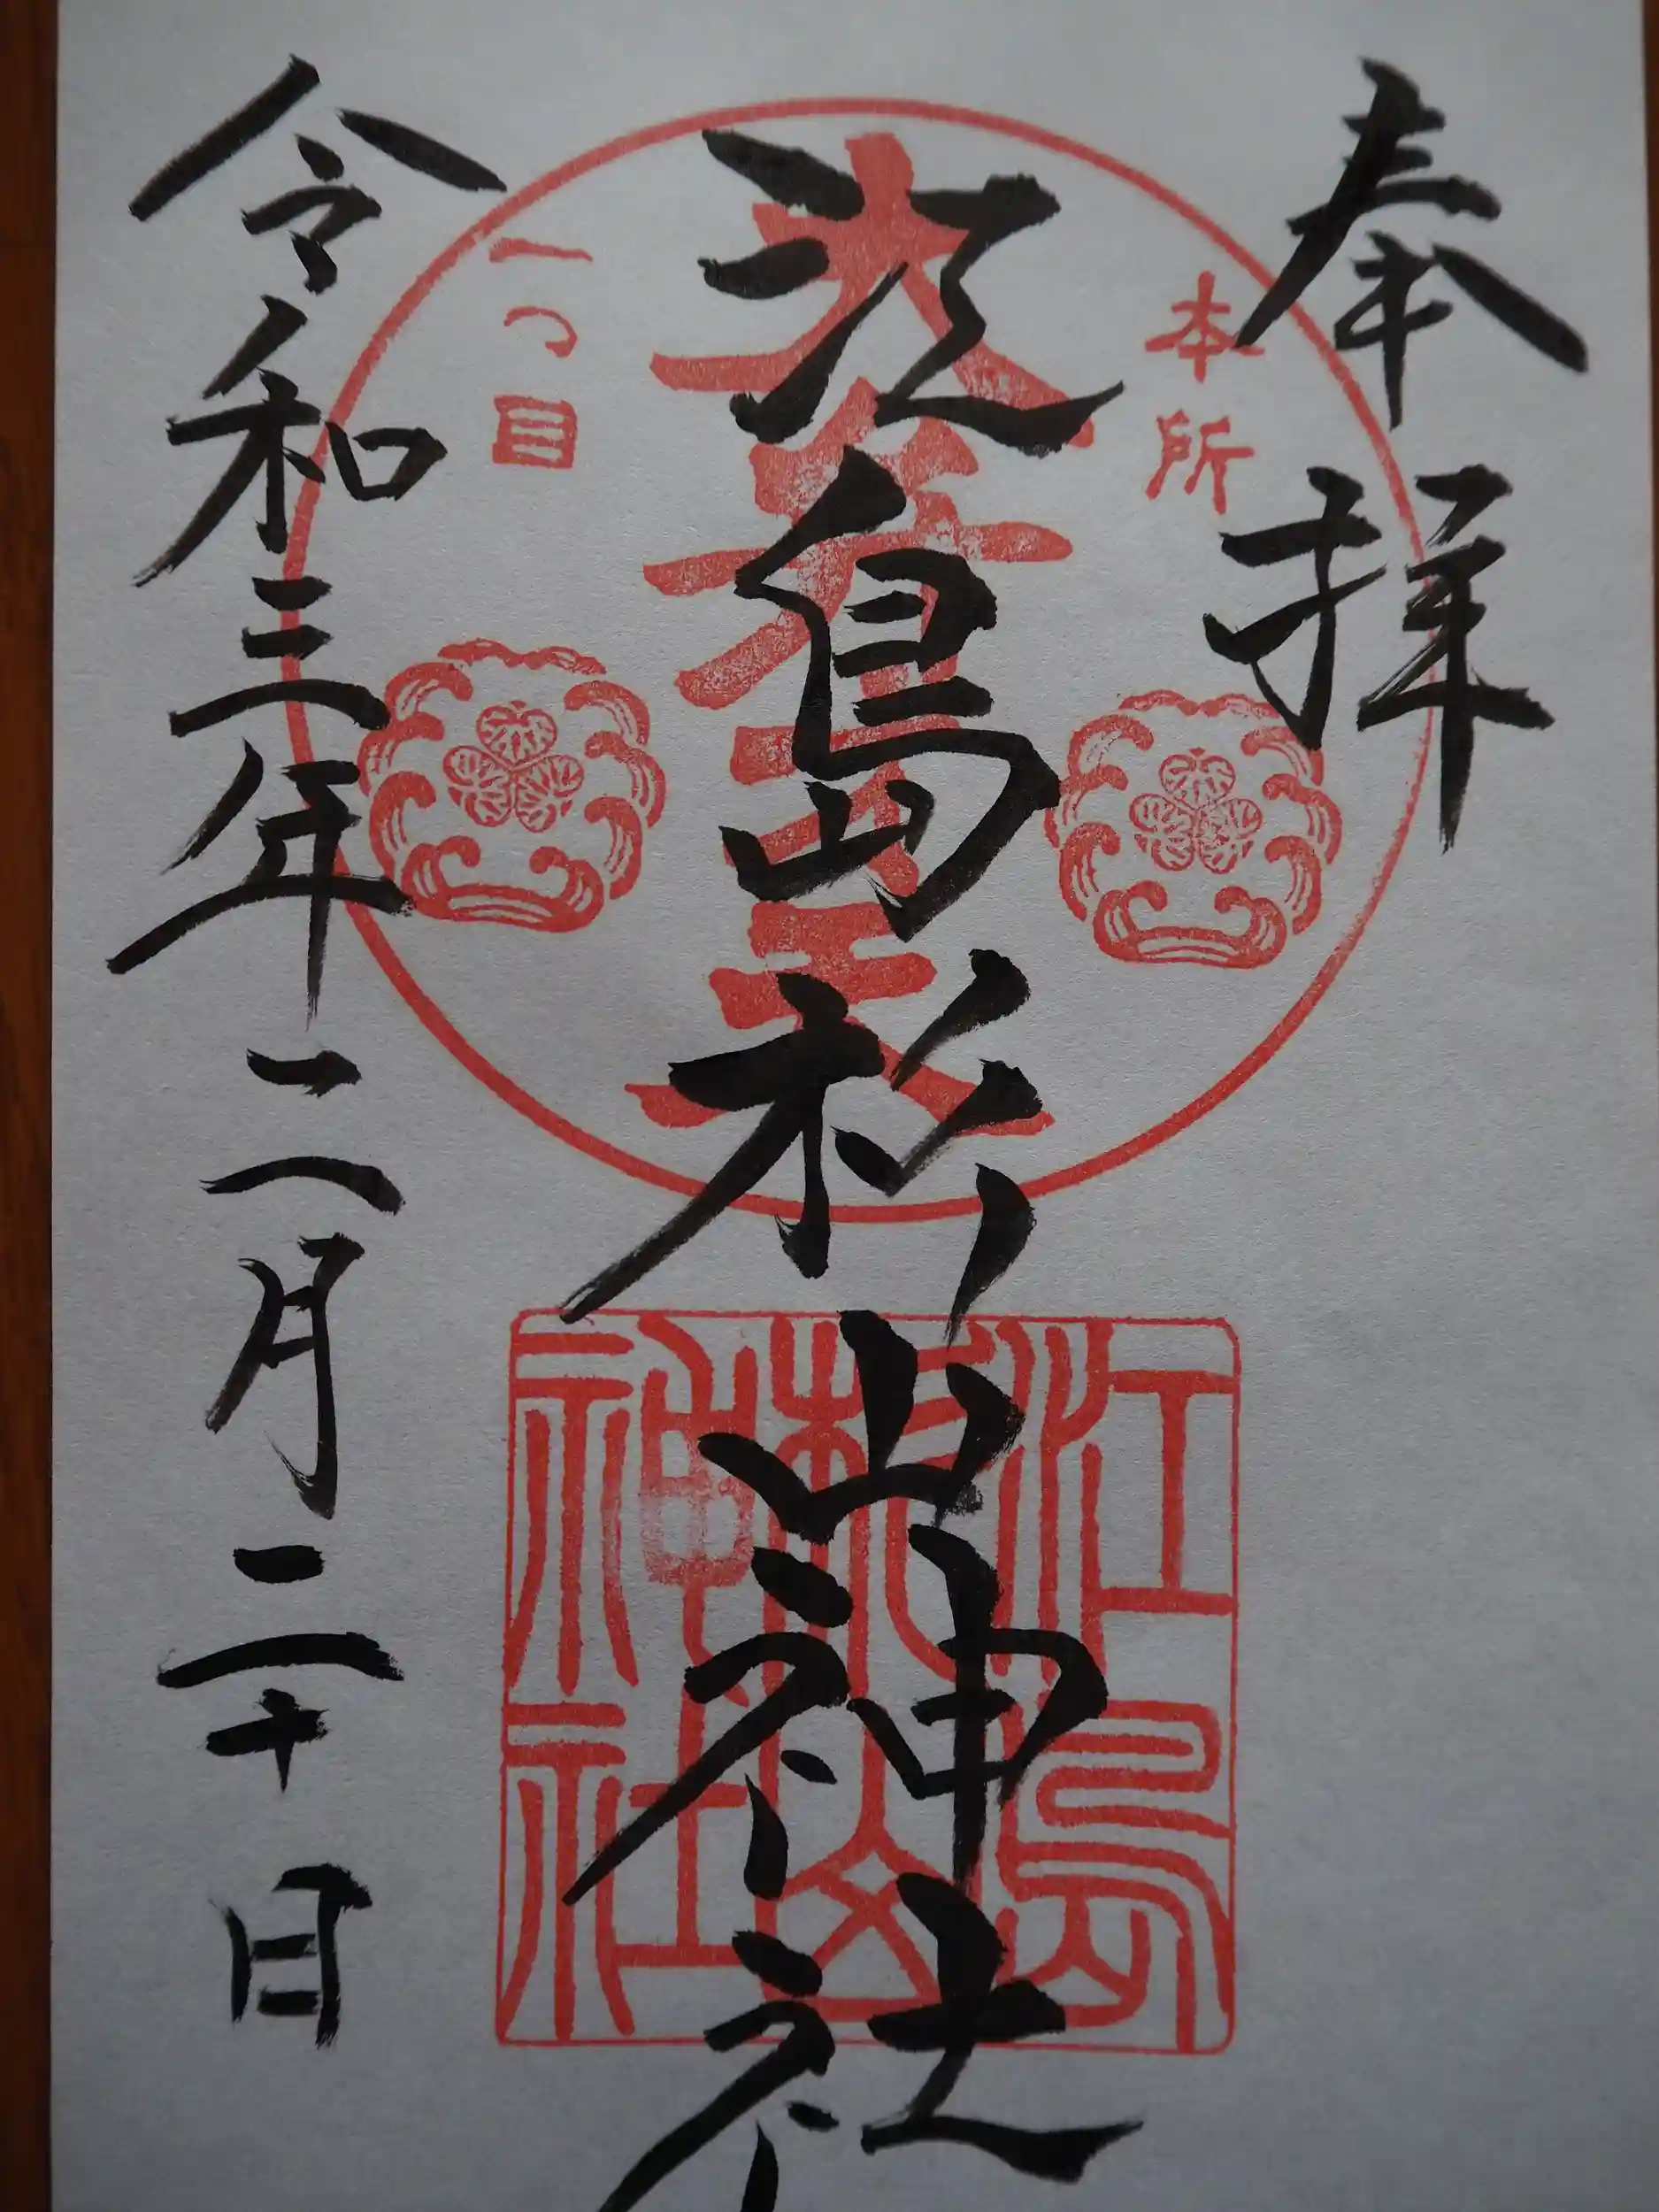 奉拝
本所
江島杉山神社
大弁才天
一つ目
令和三年二月二十日
江島
杉山
神社